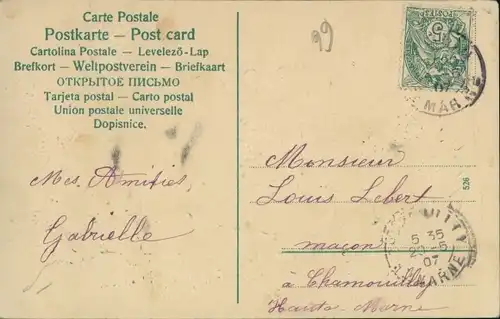 Carte Postale
Postkarte – Post card
Cartolina Postale – Levelezö-Lap
Brefkort – Weltpostverein – Briefkaart
ОТКРЫТОЕ ПИСЬМО
Tarjeta postal – Carto postal
Union postale universelle
Dopisnice.
99
5
07
MAR
Mes Amitiés,
Gabrielle
Monsieur
Louis Lebert
maçon
à Chamouilley
Haute-Marne
526
5 35
20-5
07
MARNE